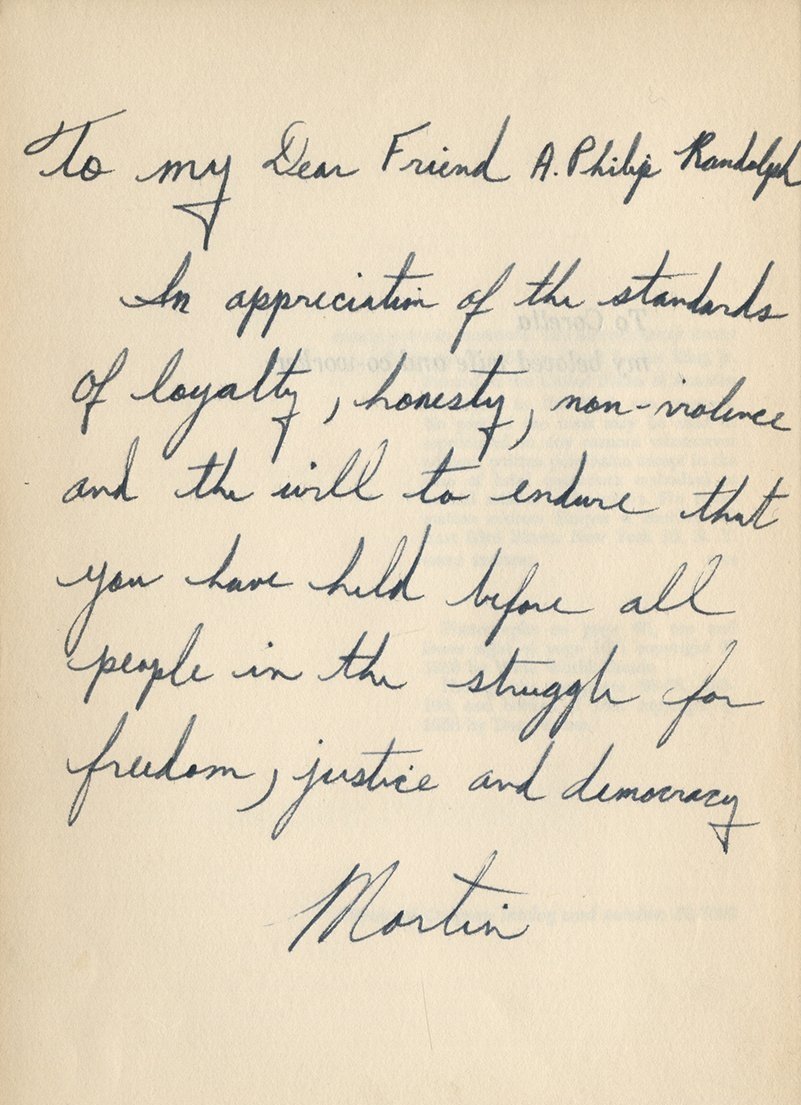 To my Dear Friend A. Philip Randolph
In appreciation of the standards
of loyalty, honesty, non-violence
and the will to endure that
you have held before all
people in the struggle for
freedom, justice and democracy
Martin
To Coretta
my beloved wife and co-worker